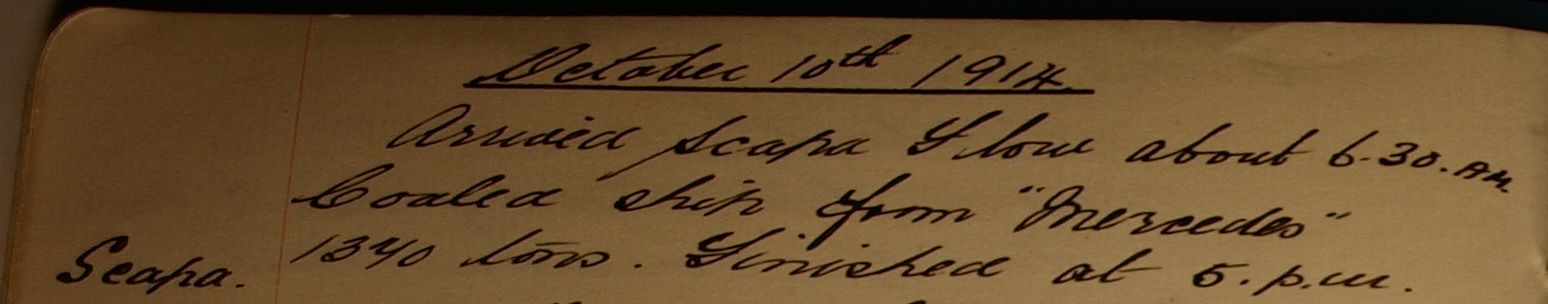 October 10th 1914.
Arrived Scapa Flow about 6.30. AM.
Coaled ship from "Mercedes"
1340 tons. Finished at 5. p.m.
Scapa.